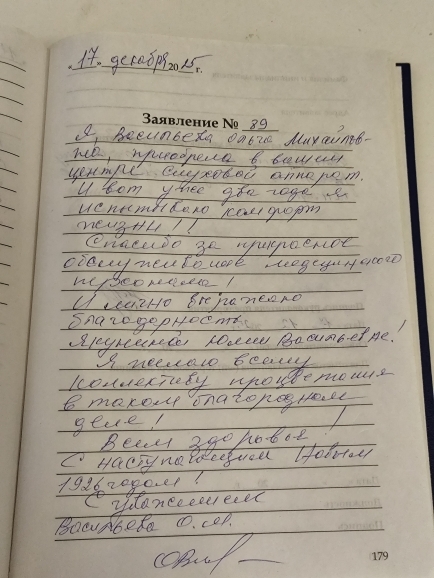 "17" декабря 2025 г.
Заявление № 89
Я, Васильева Ольга Михайлов-
на, приобрела в вашем
центре слуховой аппарат.
И вот уже два года я
испытываю комфорт
жизни!!
Спасибо за прикрасное
обслуживание медецинского
персонала!
И лично выражаю
благодарность
Юлии Васильевне!
Я желаю всему
коллективу процветания
в таком благородном
деле!
Всем здоровья!
С наступающим Новым
1926 годом!
С уважением
Васильева О.М.
179